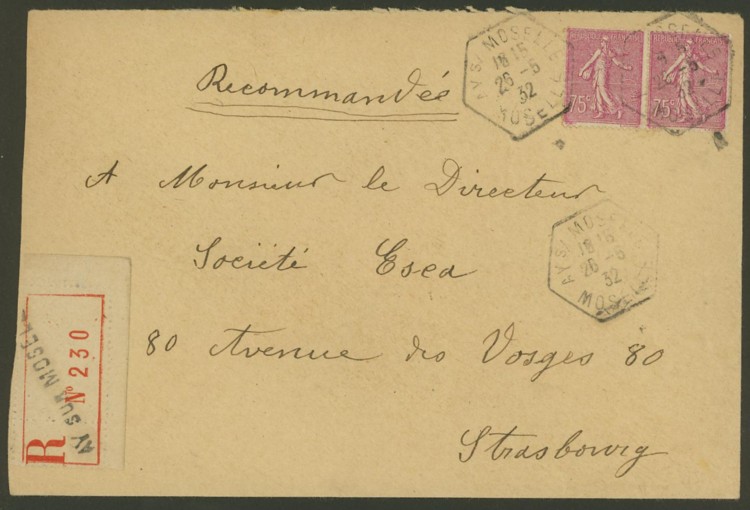 Recommandée
AY S/ MOSELLE
18 15
26 - 5
32
MOSELLE
75c
75c
A Monsieur le Directeur
Société Esca
80 Avenue des Vosges 80
Strasbourg
AY S/ MOSELLE
18 15
26 - 5
32
MOSELLE
R
N° 230
AY SUR MOSELLE